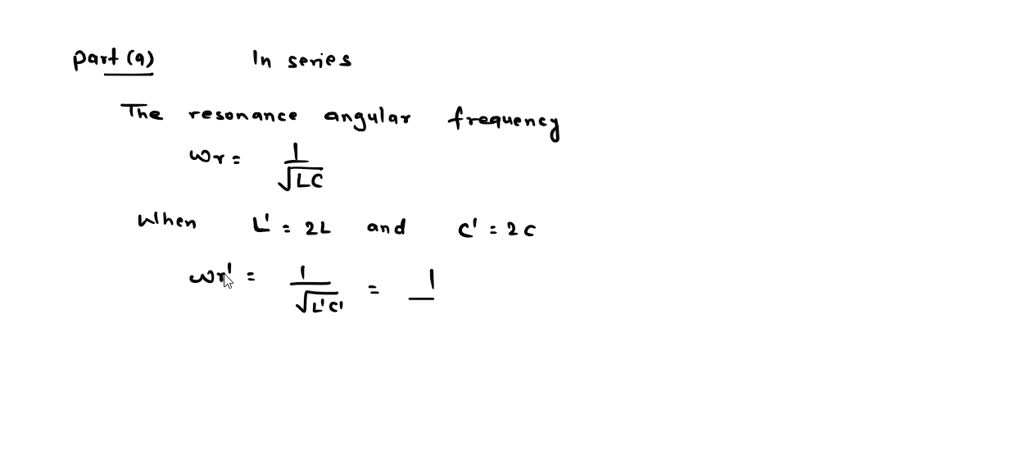 part (a) In series
The resonance angular frequency
ωr = 1/√LC
When L' = 2L and C' = 2C
ωr' = 1/√L'C' = 1/